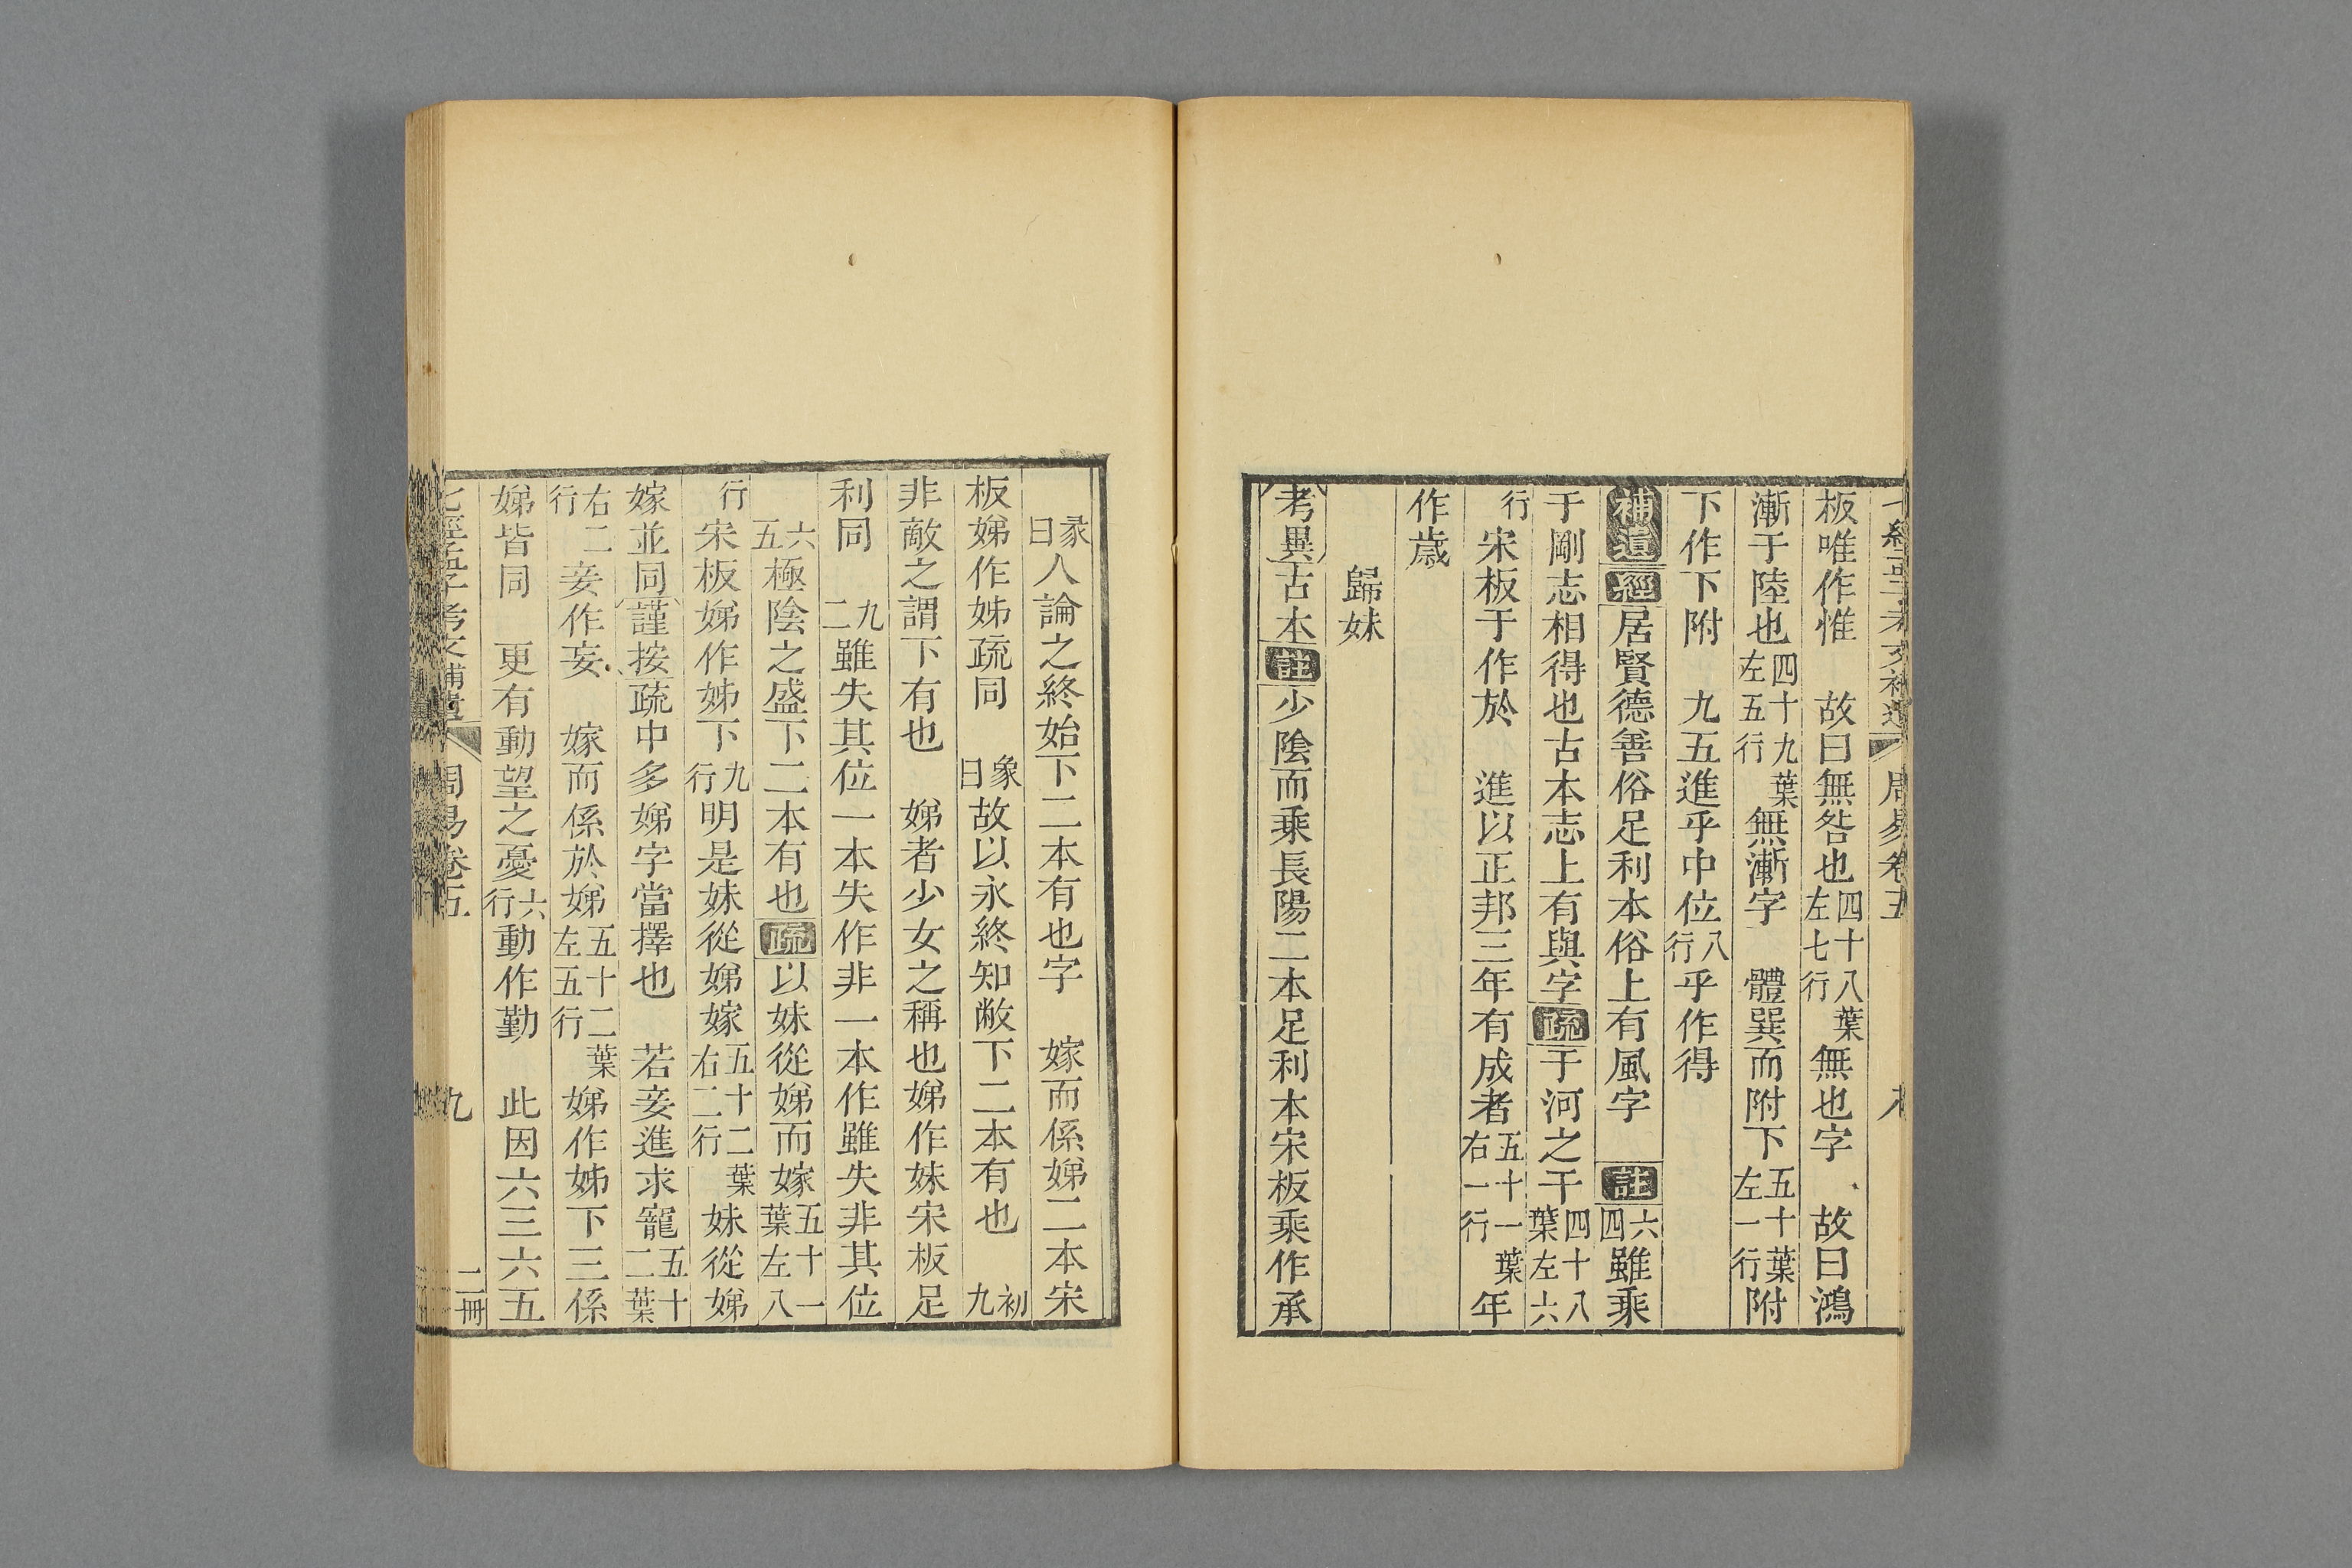 板唯作惟　故曰無咎也四十八葉左七行無也字　故曰鴻
漸于陸也四十九葉左五行無漸字　體巽而附下五十葉左一行附
下作下附　九五進乎中位八行乎作得
補遺經居賢德善俗足利本俗上有風字　註六四雖乘
于剛志相得也古本志上有與字疏于河之干四十八葉左六
行宋板于作於　進以正邦三年有成者五十一葉右一行年
作歲
歸妹
考異古本註少陰而乘長陽二本足利本宋板乘作承
彖曰人論之終始下二本有也字　嫁而係娣二本宋
板娣作姊疏同　象曰故以永終知敝下二本有也　初九
非敵之謂下有也　娣者少女之稱也娣作妹宋板足
利同　九二雖失其位一本失作非一本作雖失非其位
六五極陰之盛下二本有也疏以妹從娣而嫁五十一葉左八
行宋板娣作姊下九行明是妹從娣嫁五十二葉右二行妹從娣
嫁並同謹按疏中多娣字當擇也　若妾進求寵五十二葉
右二行妾作妄　嫁而係於娣五十二葉左五行娣作姊下三係
娣皆同　更有動望之憂六行動作勤　此因六三六五
七經孟子考文補遺　周易卷五　九　二冊